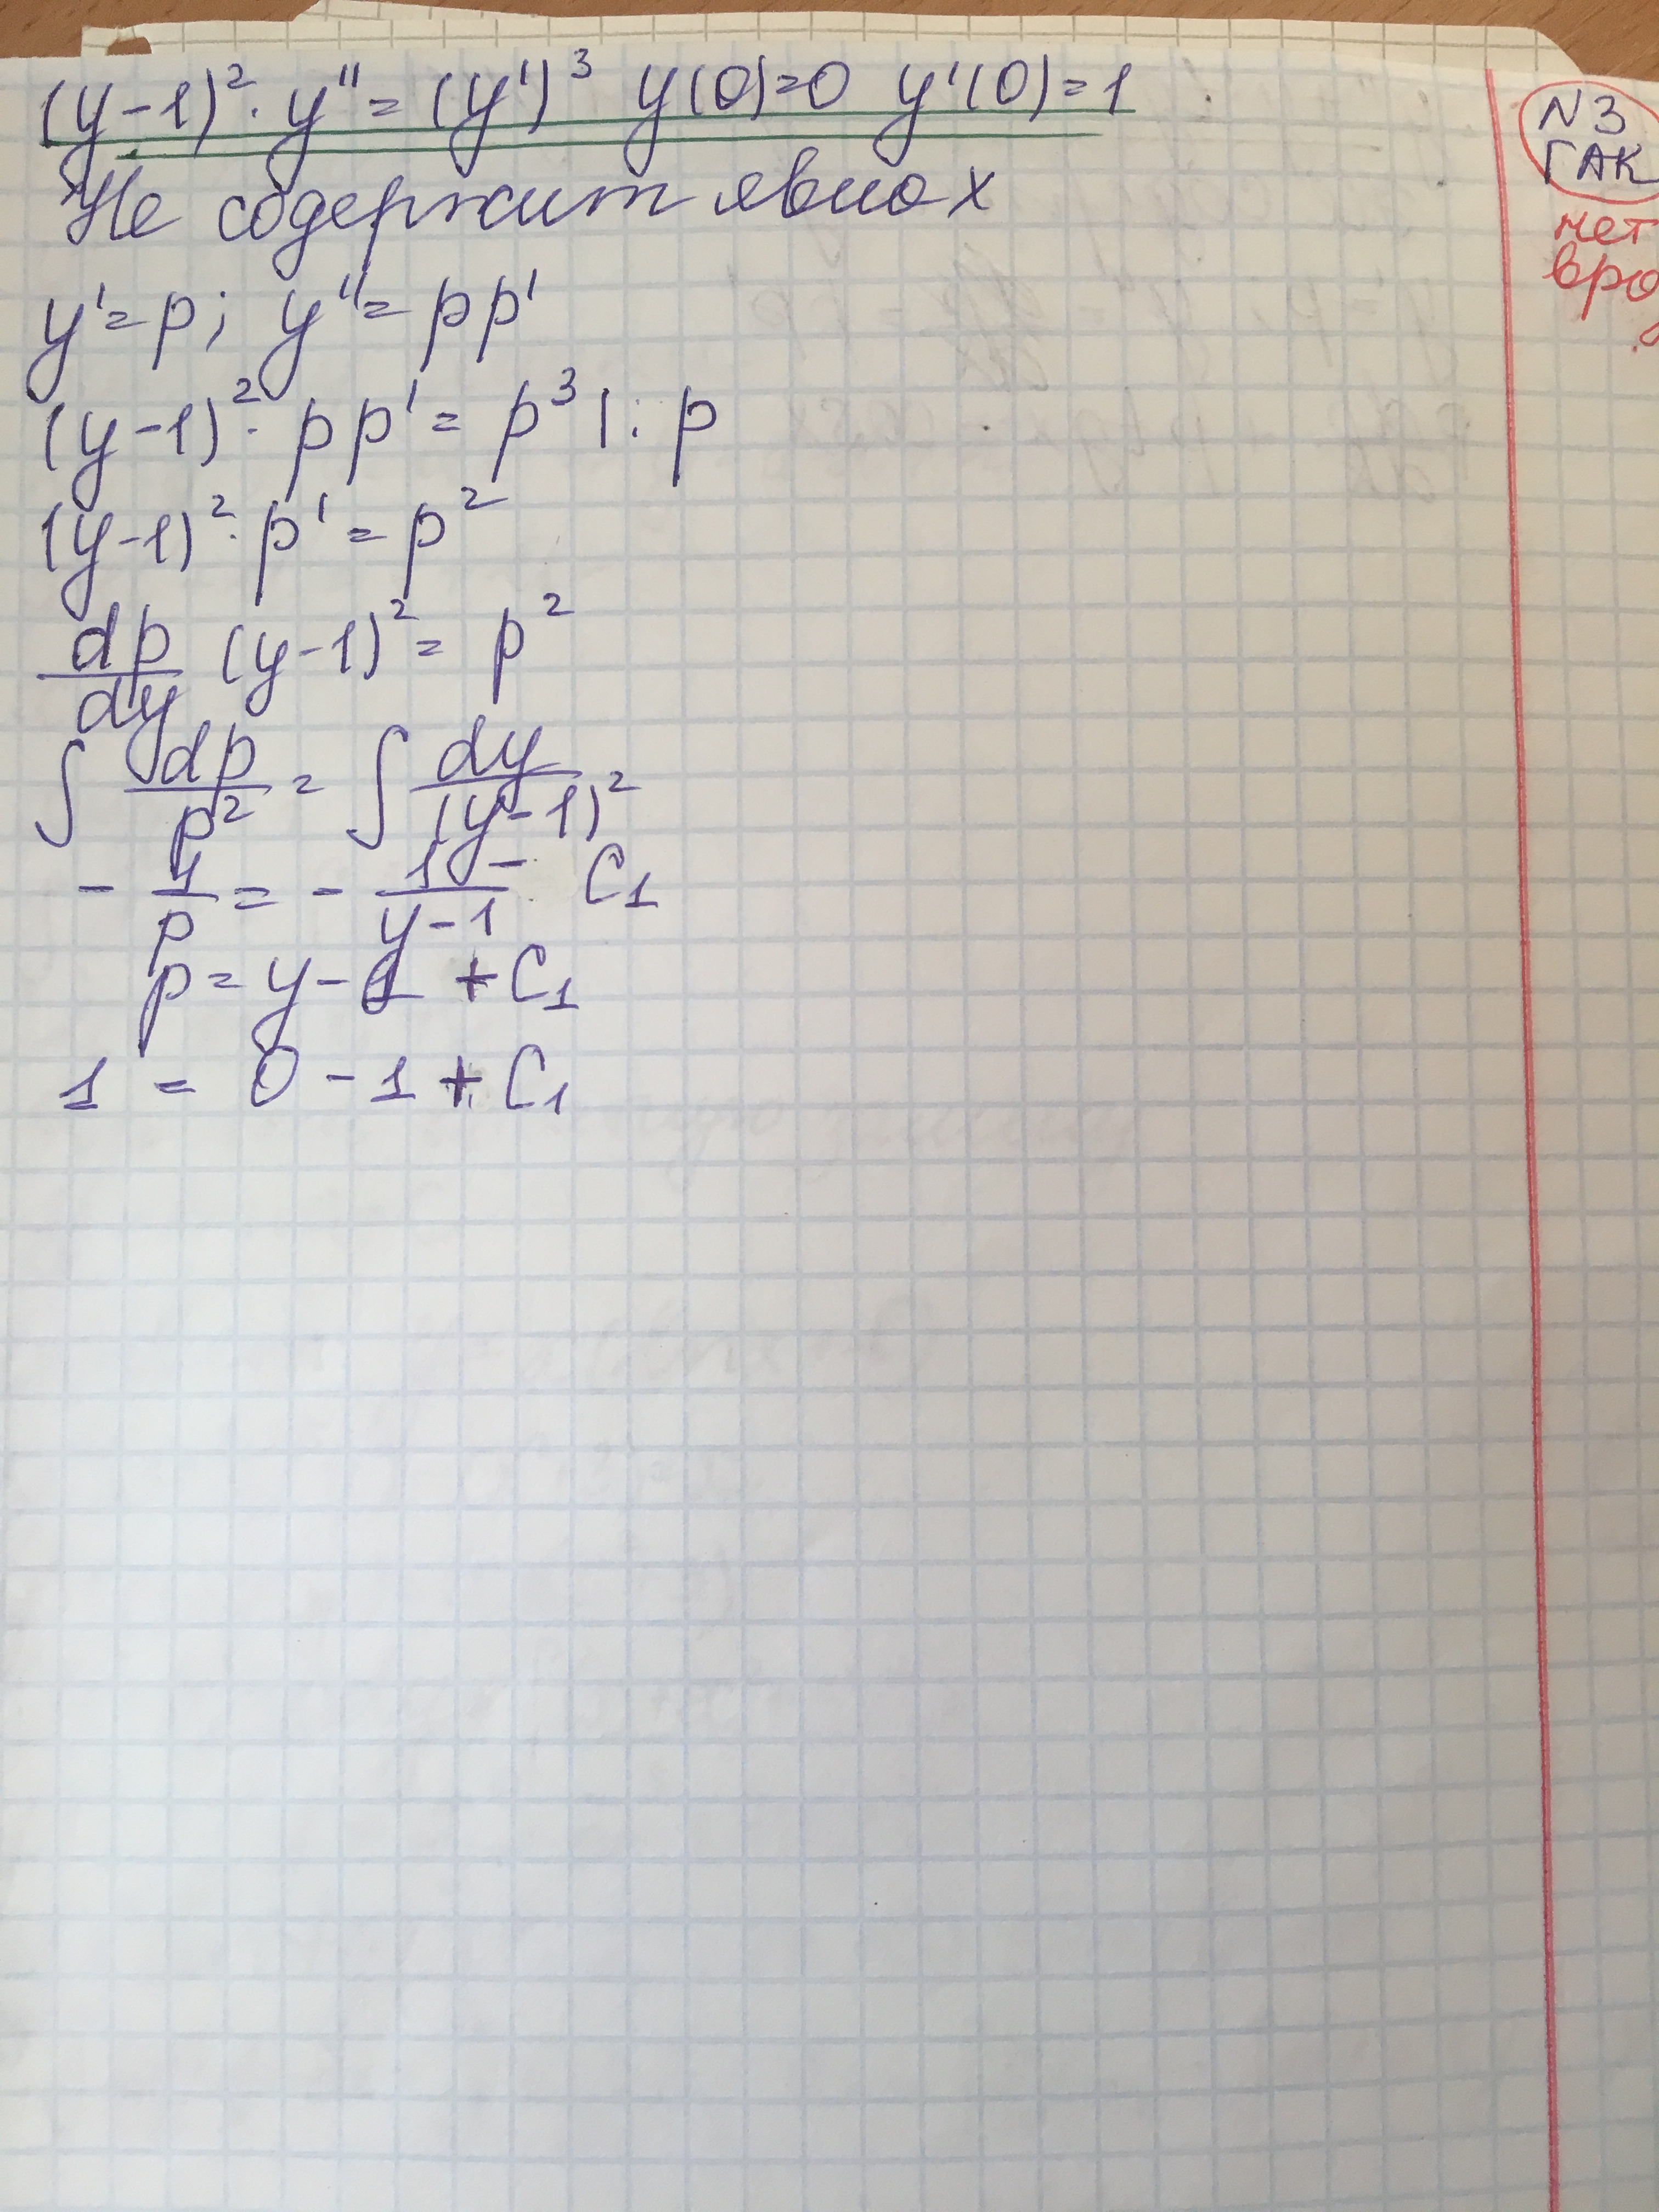 (y-1)²·y"=(y')³ y(0)=0 y'(0)=1
Не содержит явно x
y'=p; y"=pp'
(y-1)²·pp'=p³|:p
(y-1)²·p'=p²
dp/dy (y-1)²=p²
∫ dp/p² = ∫ dy/(y-1)²
- 1/p = - 1/(y-1) - C₁
p=y-1 +C₁
1 = 0-1+C₁
N3
ГАК
нет